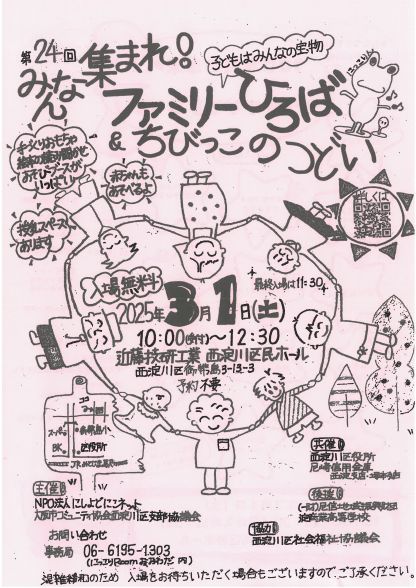 第24回
みんな集まれ!
子どもはみんなの宝物
ファミリーひろば
& ちびっこのつどい
にっこりん
手づくりおもちゃ
絵本の読み聞かせ
あそびブースが
いっぱい!
赤ちゃんも
あそべるよ
授乳スペース
あります
詳しくは
入場無料
最終入場は11:30
2025年3月1日(土)
10:00(受付)~12:30
近藤技研工業 西淀川区民ホール
西淀川区御幣島3-13-3
予約不要
ココ
スーパー
BK
区役所
主催
NPO法人にしよどにこネット
大阪市コミュニティ協会西淀川区支部協議会
お問い合わせ
事務局 06-6195-1303
(にっこりRoomみみわだ内)
共催
西淀川区役所
尼崎信用金庫
後援
協力
西淀川区社会福祉協議会
混雑緩和のため 入場をお待ちいただく場合もございますのでご了承ください。